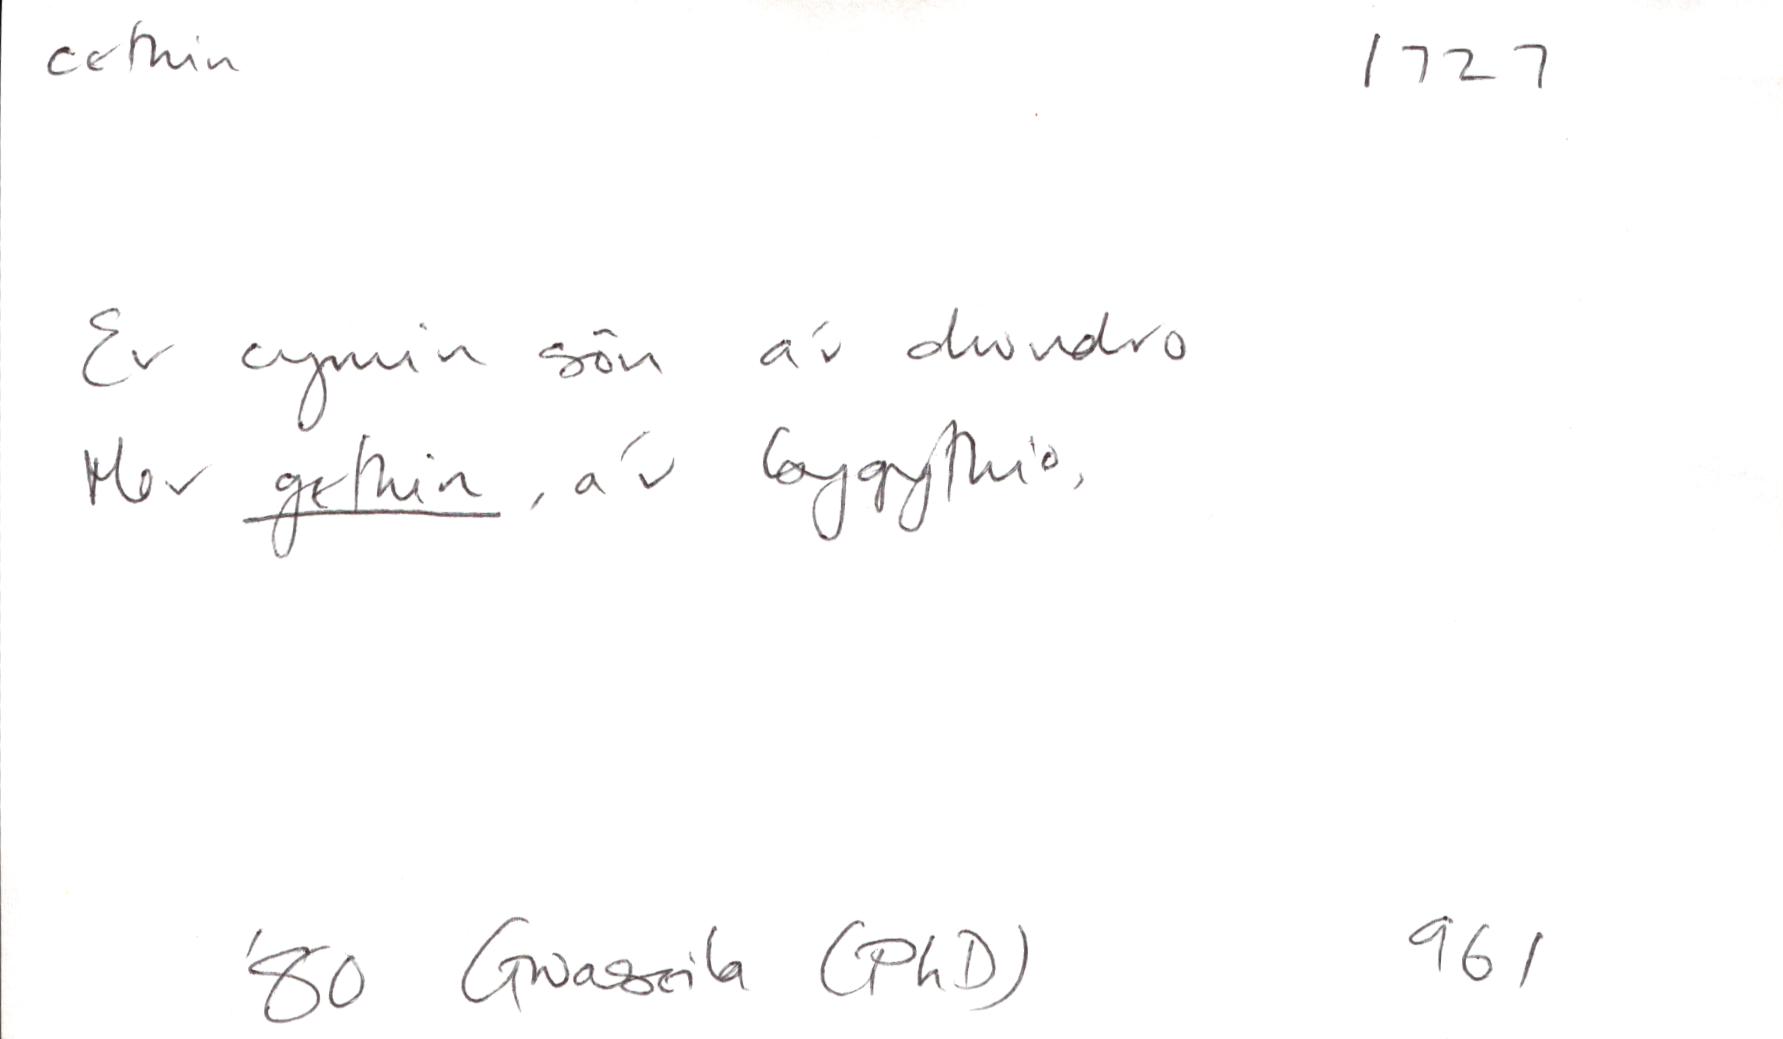 cethin 1727
Er cymin sôn a'r dwndro
Mor gethin, a'r bygythio,
'80 Gwaseila (PhD) 961